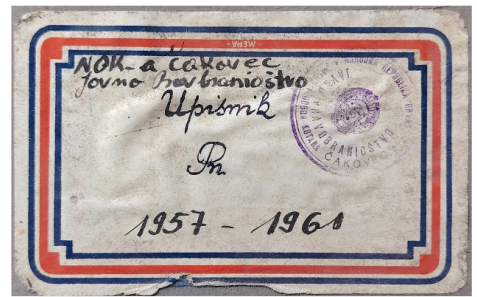 MEPA-
NOK-a Čakovec
Javno pravobraništvo
Upisnik
Pn
1957 - 1961
NARODNA REPUBLIKA HRVATSKA
JAVNO
PRAVOBRANIOŠTVO
KOTARA ČAKOVEC